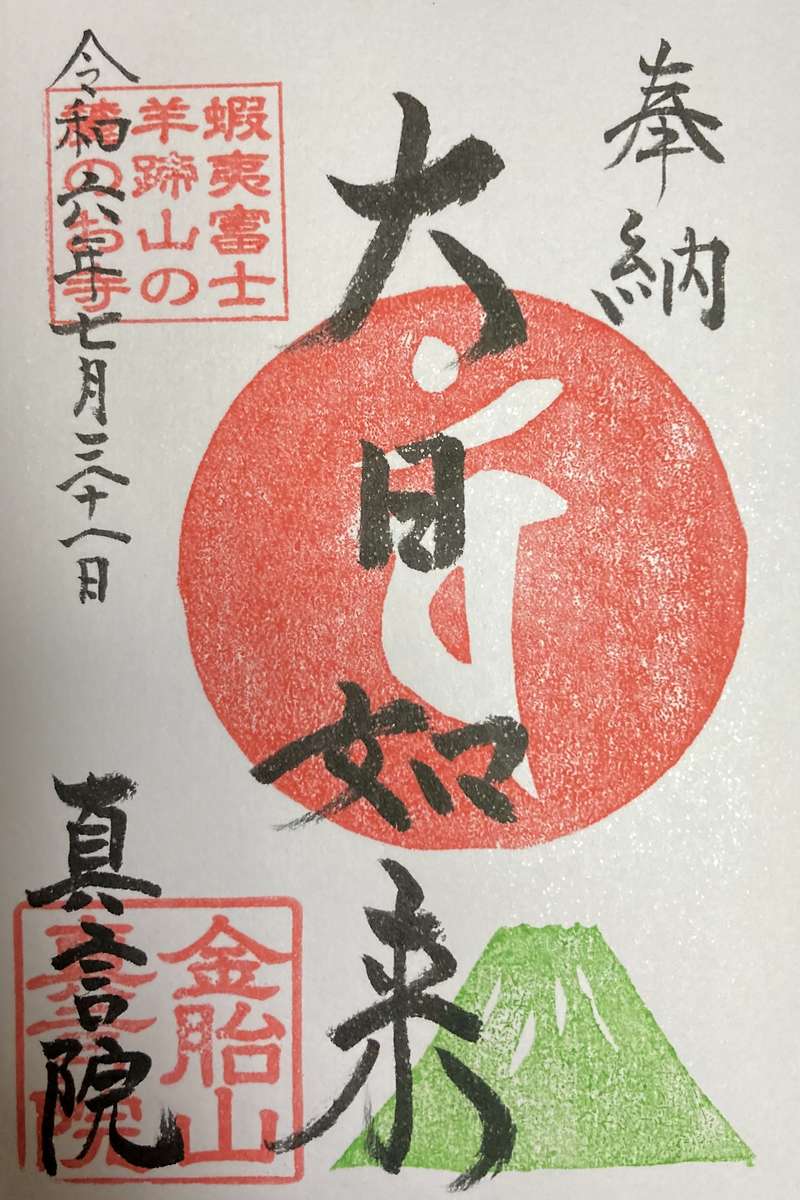 奉納
大日如来
蝦夷富士
羊蹄山の
のお寺
令和六年七月三十一日
金胎山
真言院
真言院